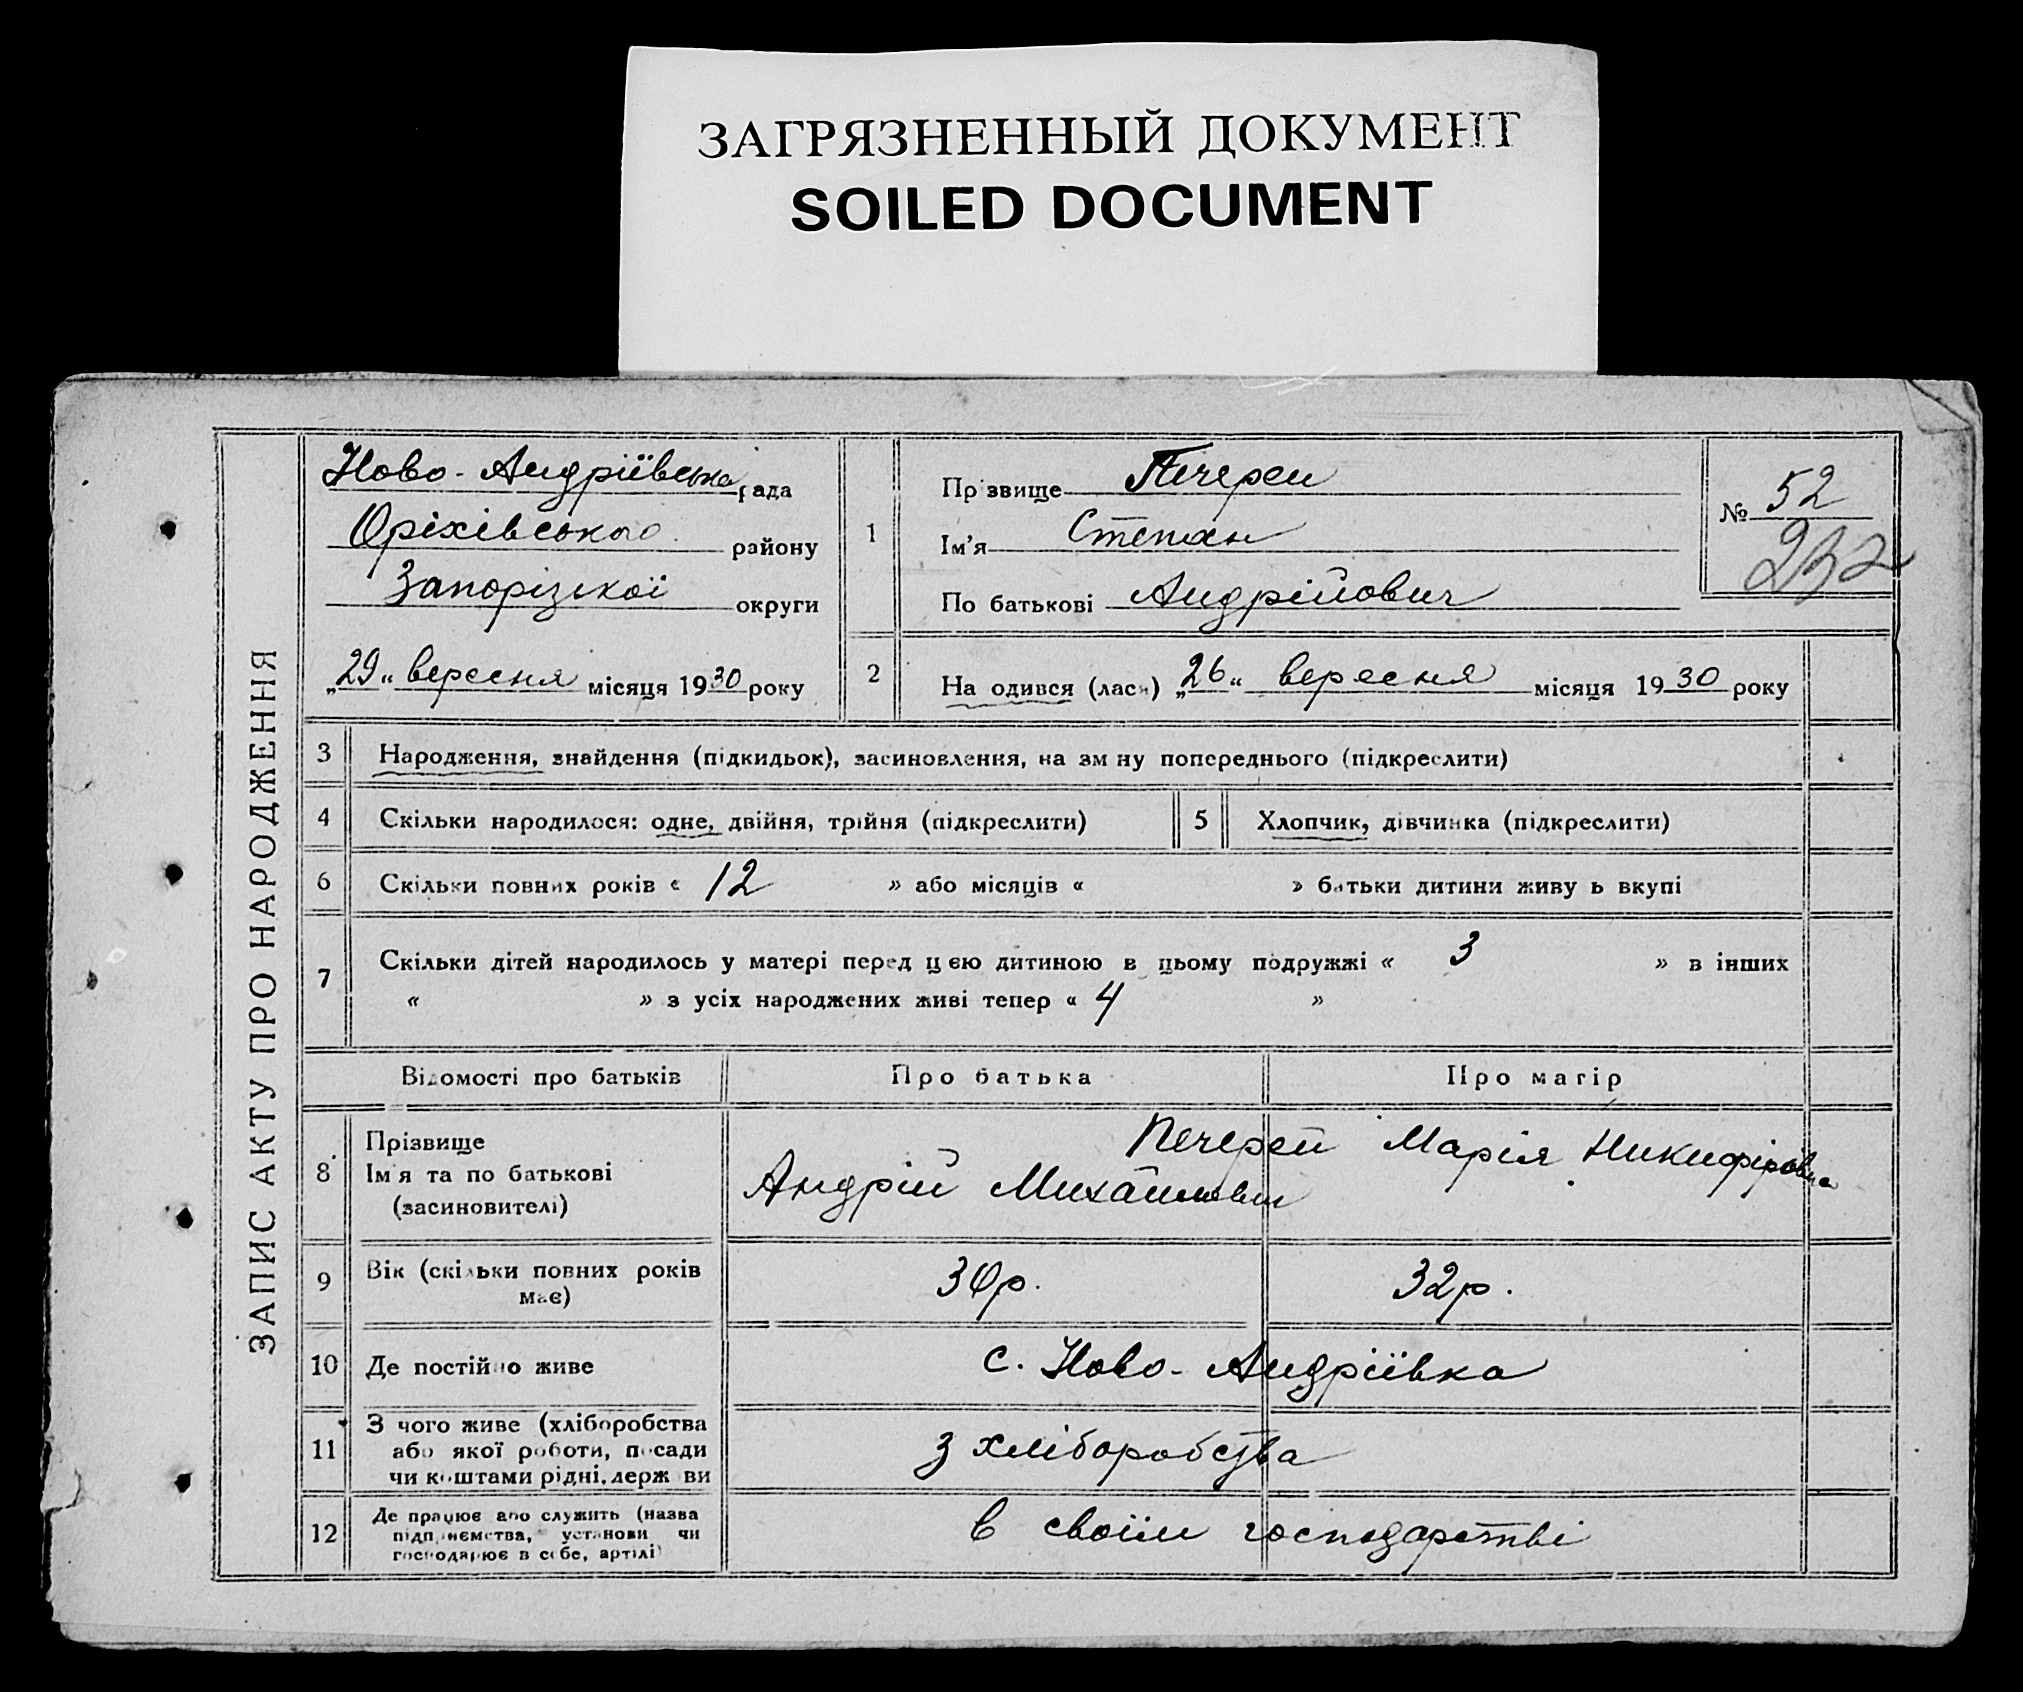 ЗАГРЯЗНЕННЫЙ ДОКУМЕНТ
SOILED DOCUMENT
ЗАПИС АКТУ ПРО НАРОДЖЕННЯ
Ново-Андріївська рада
Оріхівського району
Запорізької округи
„29“ вересня місяця 1930 року
1
Прізвище Печерей
Ім'я Степан
По батькові Андрійович
№ 52
232
2
На одився (лась) „26“ вересня місяця 1930 року
3 Народження, знайдення (підкидьок), засиновлення, на зм ну попереднього (підкреслити)
4 Скільки народилося: одне, двійня, трійня (підкреслити)
5 Хлопчик, дівчинка (підкреслити)
6 Скільки повних років « 12 » або місяців « » батьки дитини живу ь вкупі
7 Скільки дітей народилось у матері перед цією дитиною в цьому подружжі « 3 » в інших
« » з усіх народжених живі тепер « 4 »
Відомості про батьків Про батька Про матір
8 Прізвище
Ім'я та по батькові
(засиновителі)
Печерей Марія Никифірівна
Андрій Михайлович
9 Вік (скільки повних років
має)
30р. 32р.
10 Де постійно живе с. Ново-Андріївка
11 З чого живе (хліборобства
або якої роботи, посади
чи коштами рідні, держ ви
з хліборобства
12 Де працює або служить (назва
підприємства, установи чи
господарює в себе, артілі)
в своїм господарстві